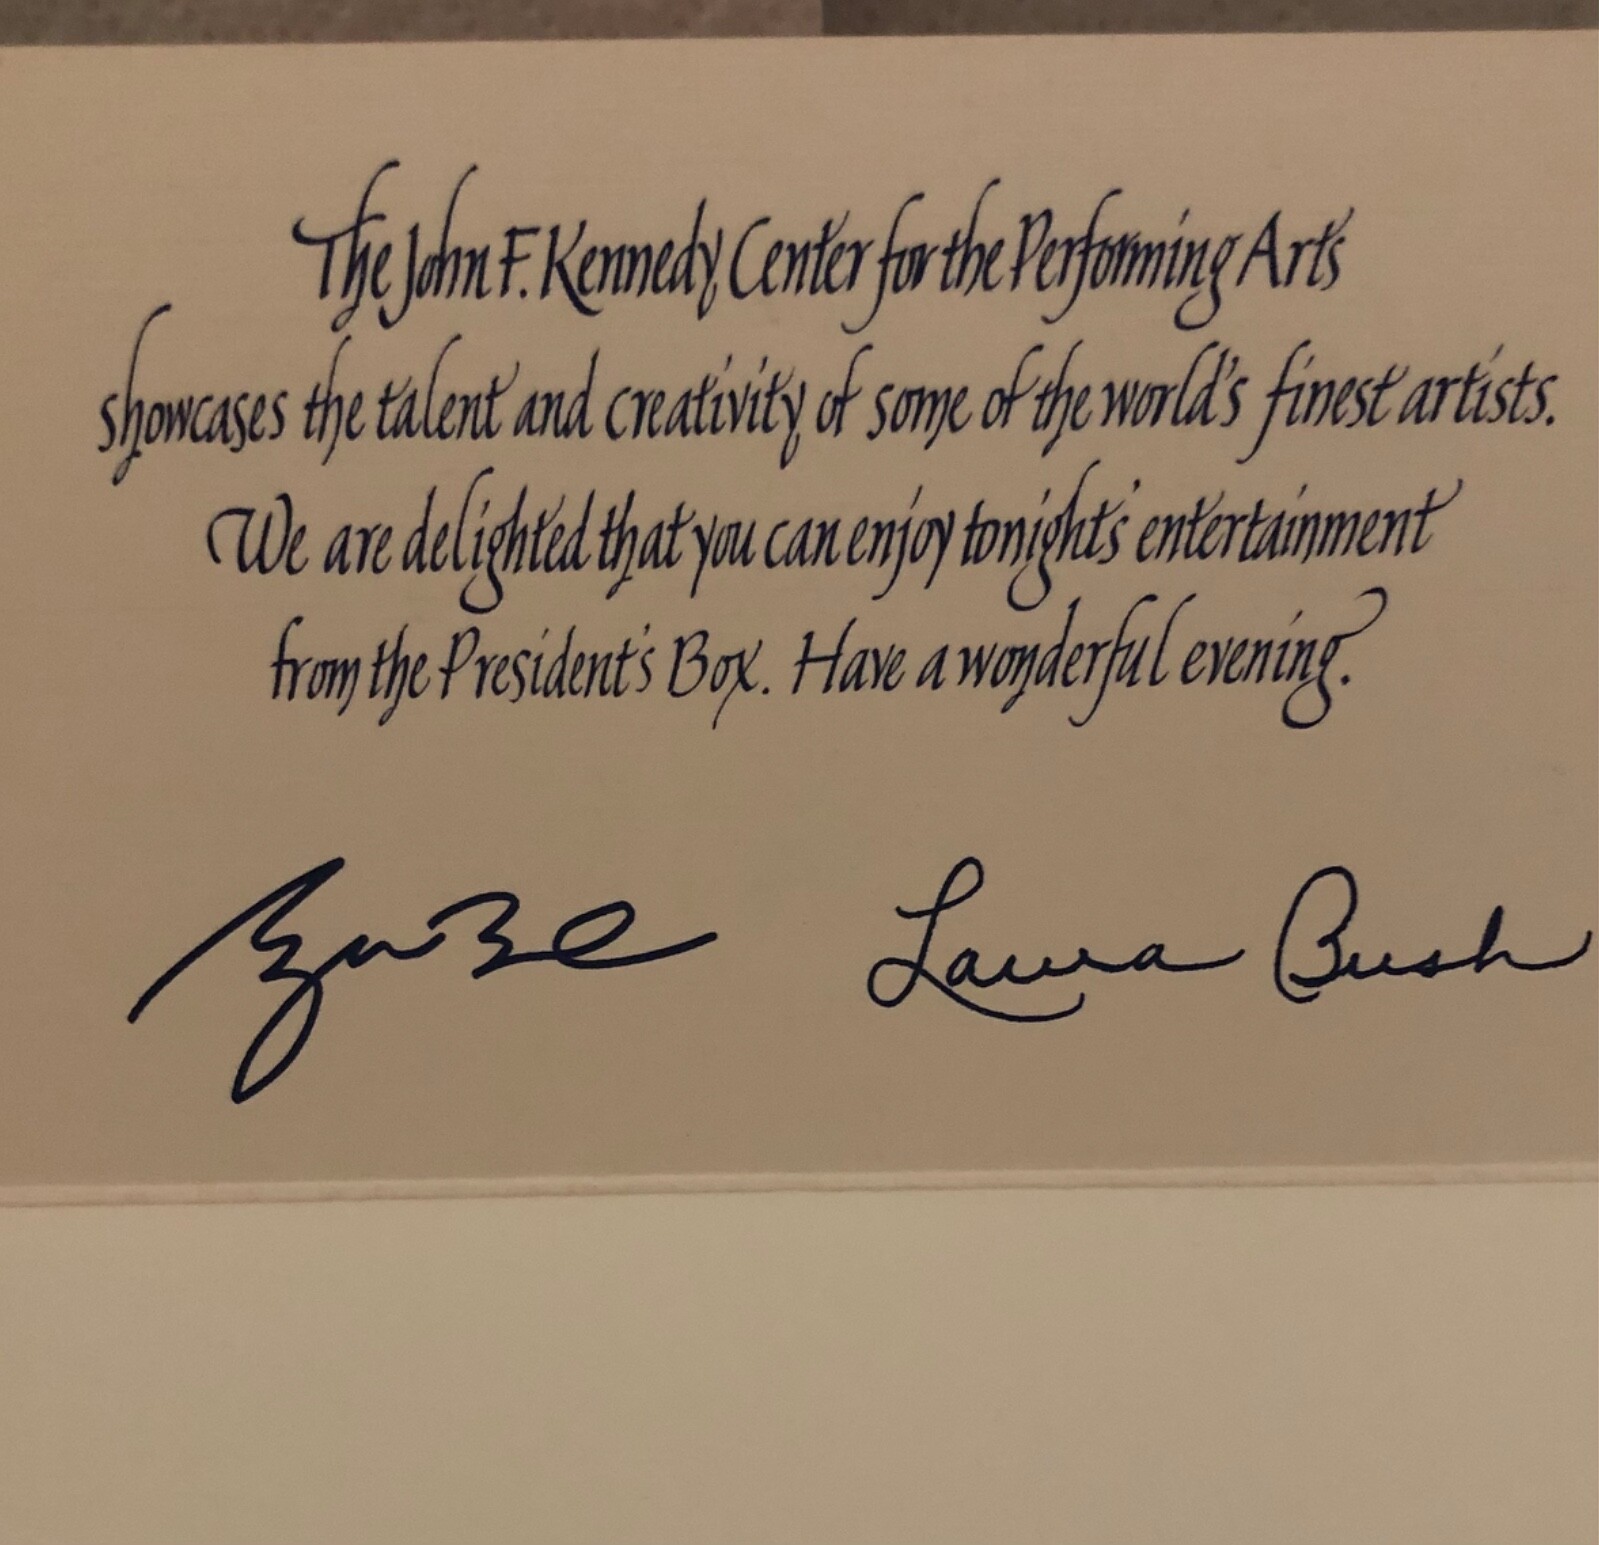 The John F. Kennedy Center for the Performing Arts
showcases the talent and creativity of some of the world's finest artists.
We are delighted that you can enjoy tonight's entertainment
from the President's Box. Have a wonderful evening.
Laura Bush